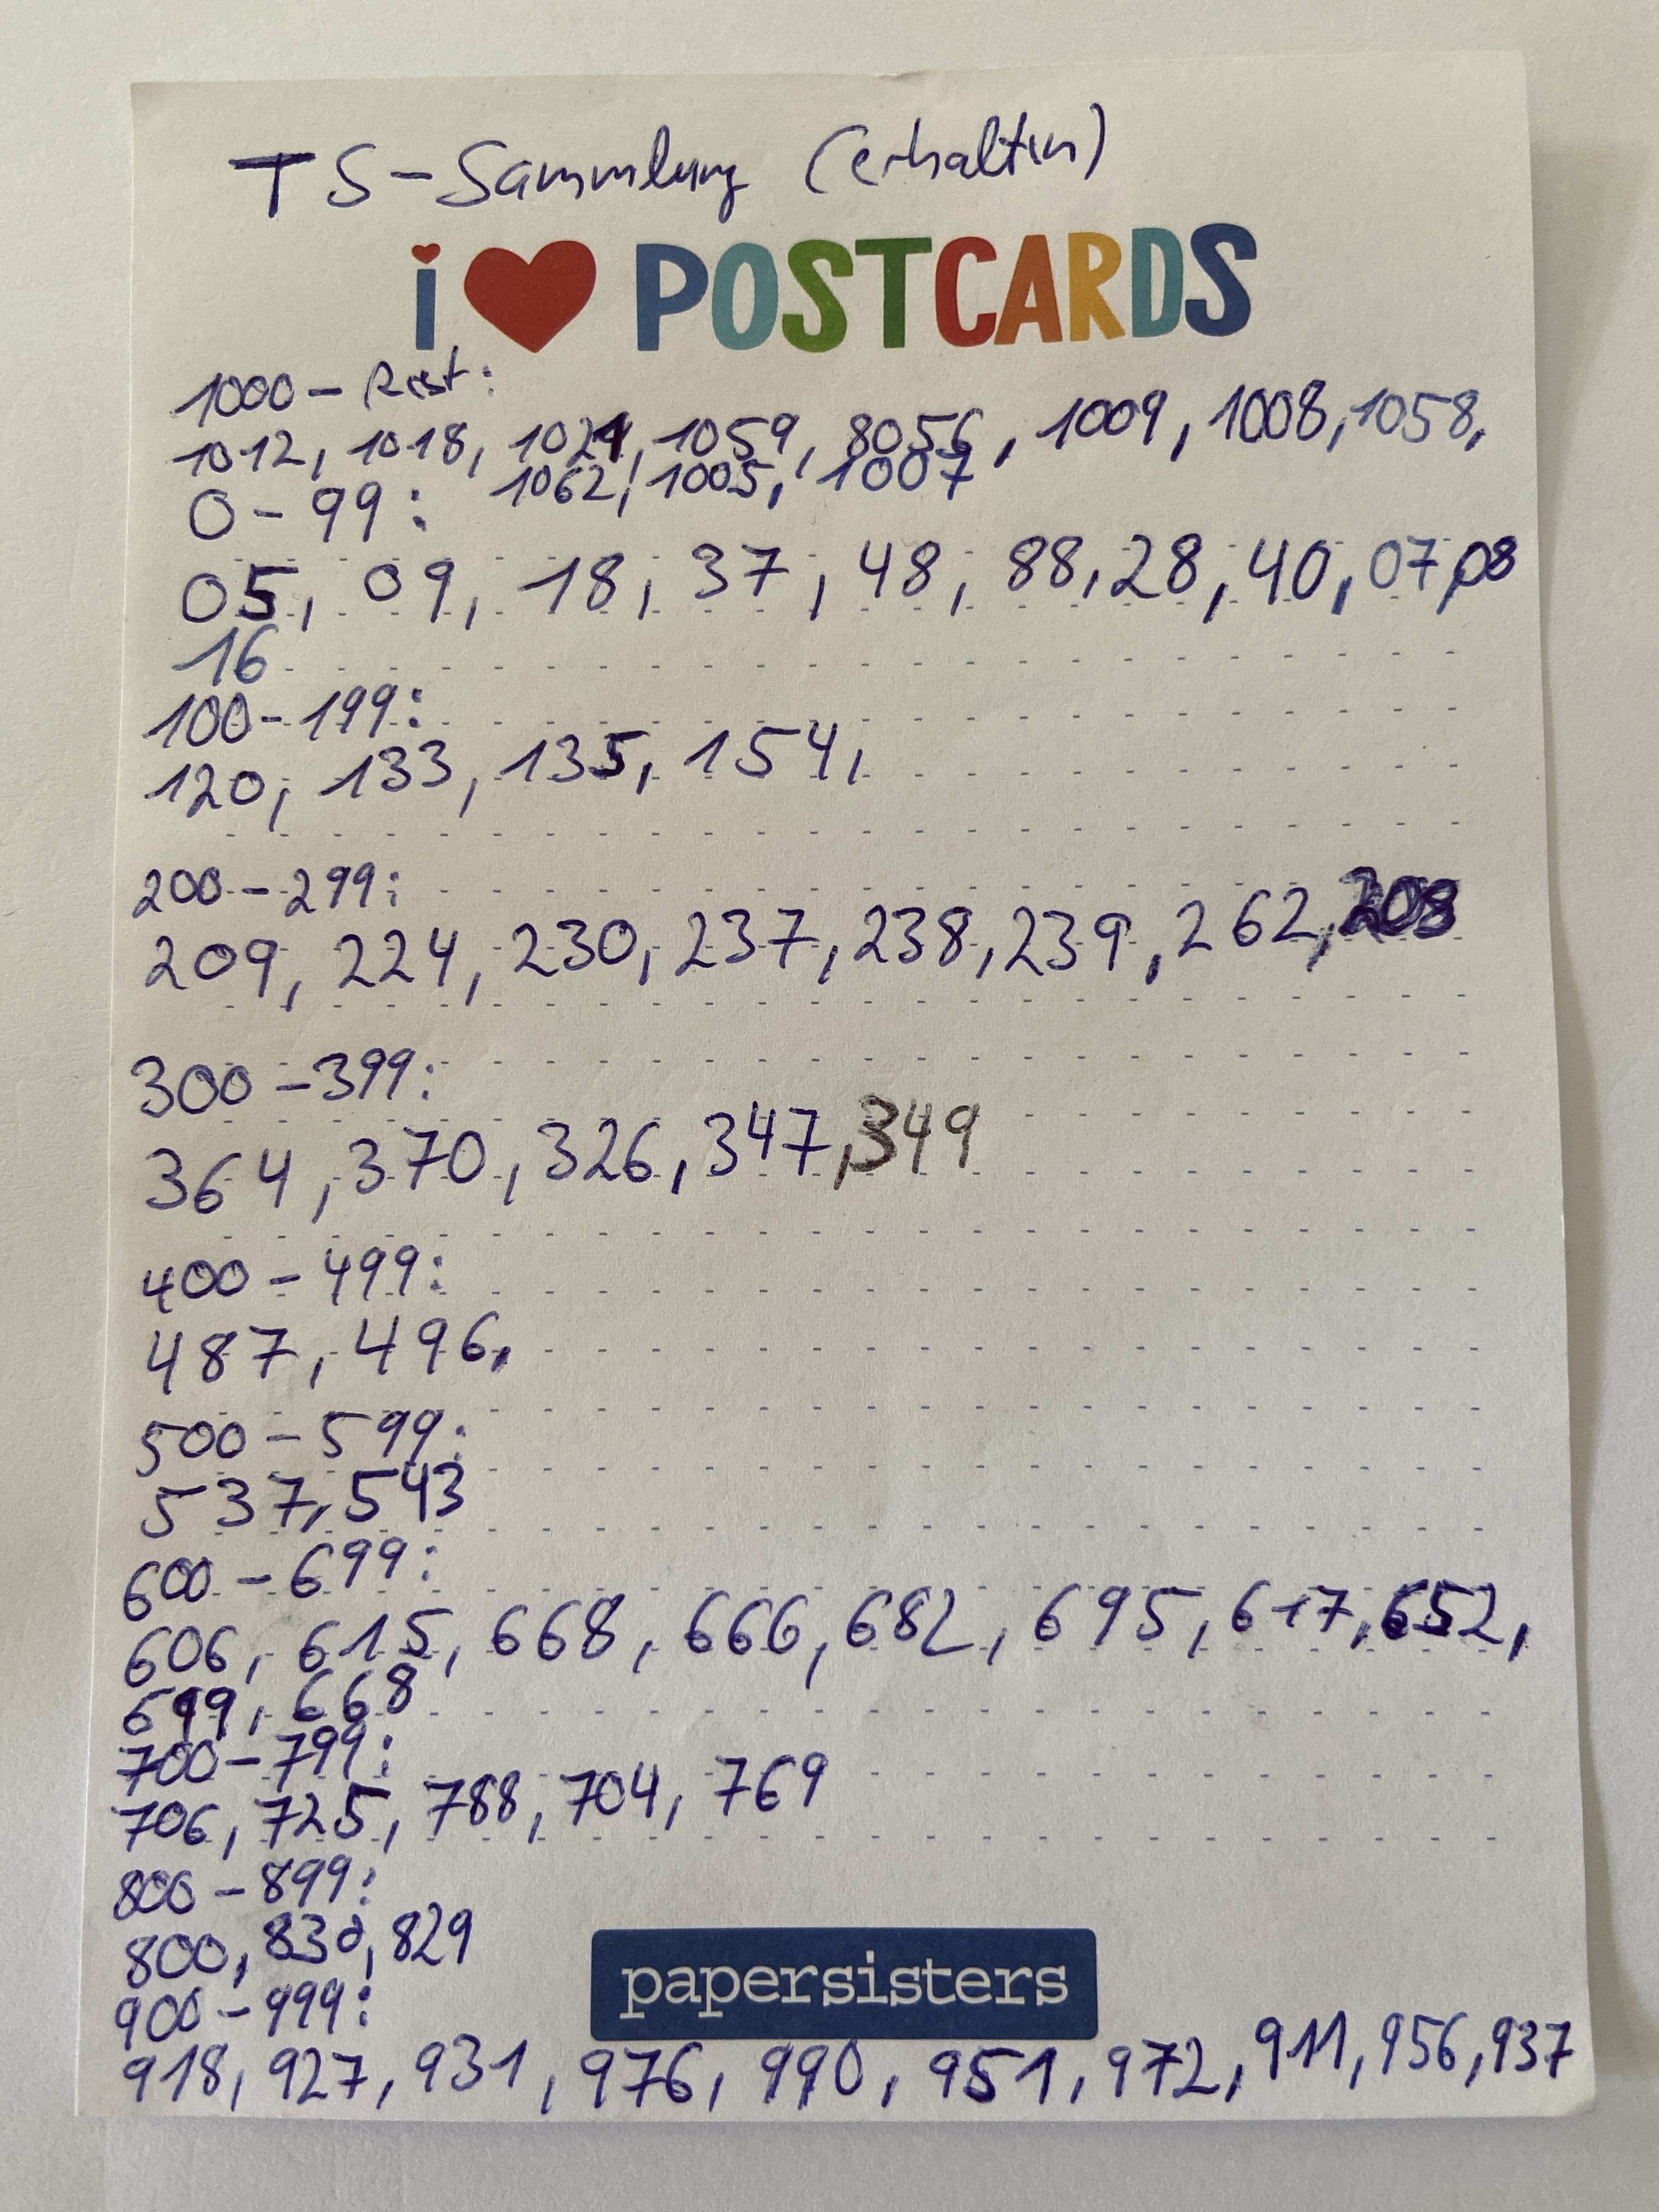 TS-Sammlung (erhalten)
i ♥ POSTCARDS
1000- Rest:
1012, 1018, 1021, 1059, 8056, 1009, 1008, 1058,
1062, 1005, 1007
0-99:
05, 09, 18, 37, 48, 88, 28, 40, 07, 08
16
100-199:
120, 133, 135, 154,
200-299:
209, 224, 230, 237, 238, 239, 262, 208
300-399:
364, 370, 326, 347, 349
400-499:
487, 496,
500-599:
537, 543
600-699:
606, 615, 668, 666, 682, 695, 617, 652,
699, 668
700-799:
706, 725, 788, 704, 769
800-899:
800, 830, 829
900-999:
papersisters
918, 927, 931, 976, 990, 951, 972, 911, 956, 937